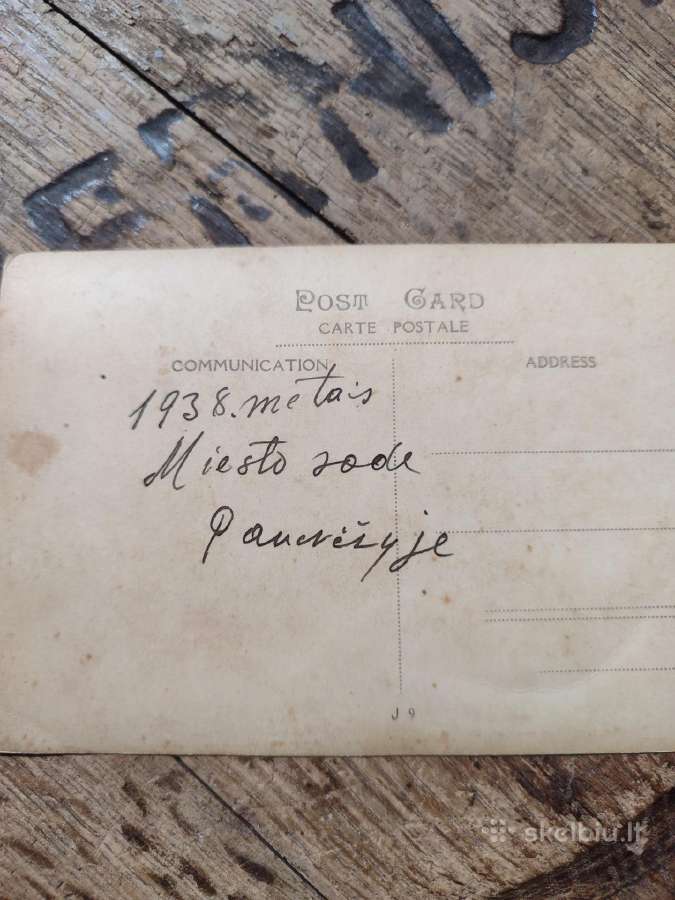 POST CARD
CARTE POSTALE
COMMUNICATION
ADDRESS
1938. metais
Miesto sode
Panevėžyje
J 9
skelbiu.lt